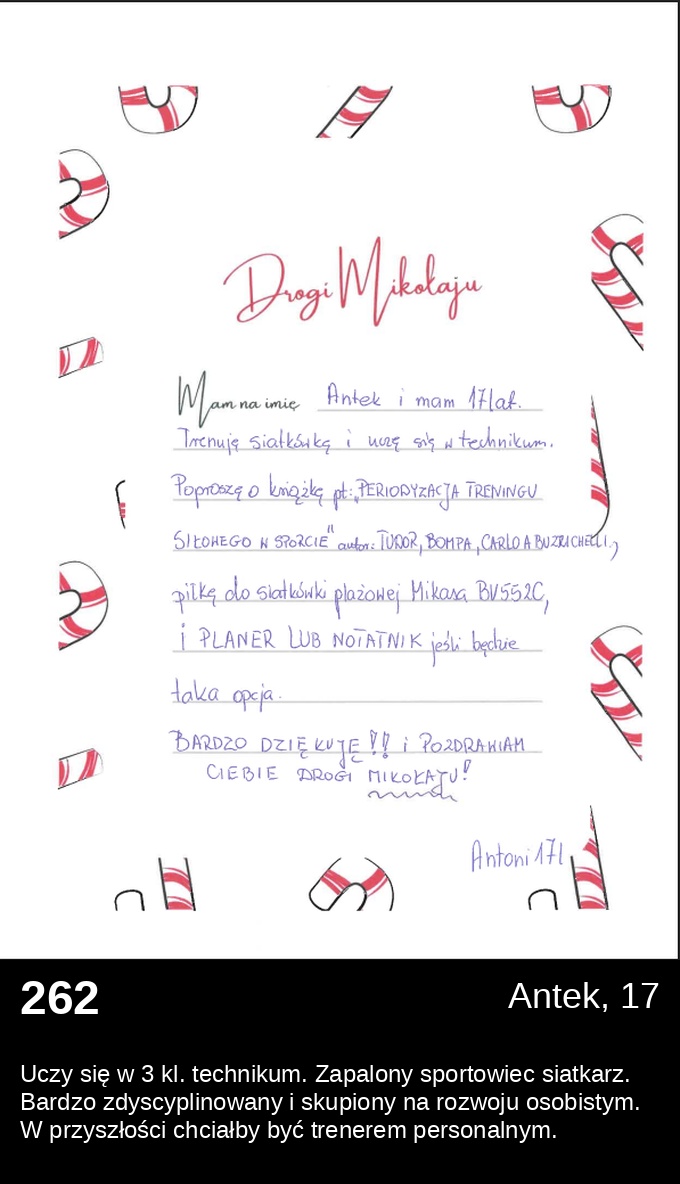 Drogi Mikołaju
Mam na imię Antek i mam 17lat.
Trenuję siatkówkę i uczę się w technikum.
Poproszę o książkę pt: „PERIODYZACJA TRENINGU
SIŁOWEGO W SPORCIE" autor: TUDOR, BOMPA, CARLO A BUZZICHELLI,
piłkę do siatkówki plażowej Mikasa BV552C,
i PLANER LUB NOTATNIK jeśli będzie
taka opcja.
BARDZO DZIĘKUJĘ!! i POZDRAWIAM
CIEBIE DROGI MIKOŁAJU!
Antoni 17l
262 Antek, 17
Uczy się w 3 kl. technikum. Zapalony sportowiec siatkarz.
Bardzo zdyscyplinowany i skupiony na rozwoju osobistym.
W przyszłości chciałby być trenerem personalnym.